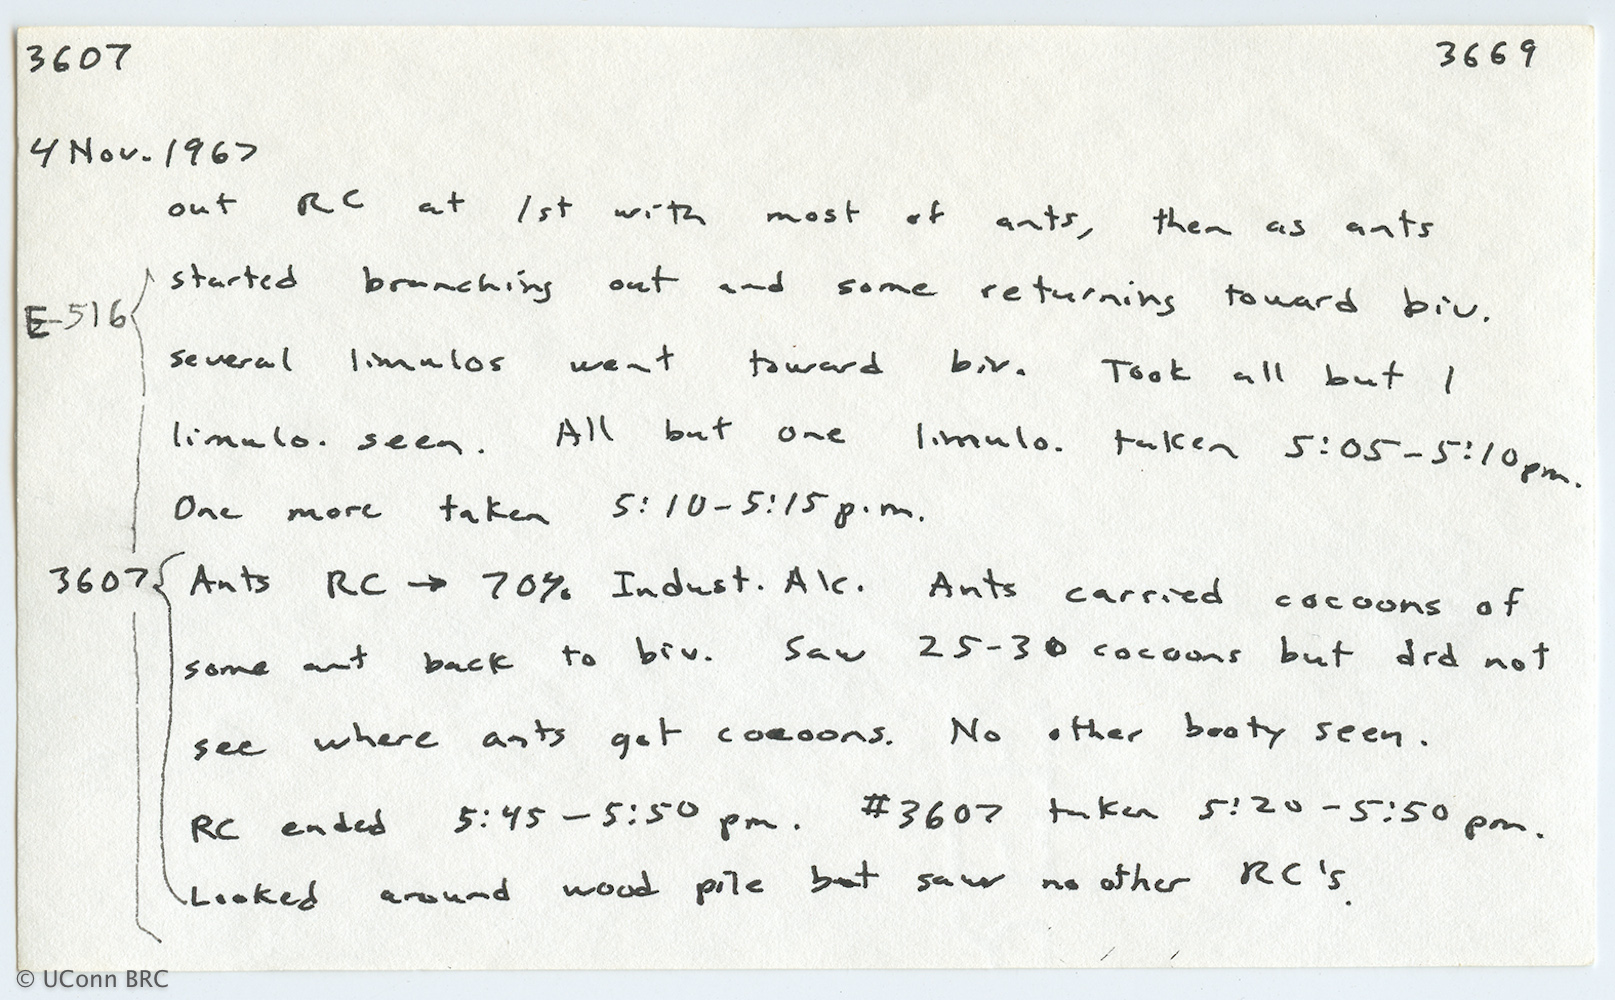 3607 3669
4 Nov. 1967
out RC at 1st with most of ants, then as ants
started branching out and some returning toward biv.
E-516
several limulos went toward biv. Took all but 1
limulo. seen. All but one limulo. taken 5:05-5:10 pm.
One more taken 5:10-5:15 p.m.
3607 { Ants RC → 70% Indust. Alc. Ants carried cocoons of
some ant back to biv. Saw 25-30 cocoons but did not
see where ants got cocoons. No other booty seen.
RC ended 5:45-5:50 pm. #3607 taken 5:20-5:50 pm.
Looked around wood pile but saw no other RC's.
© UConn BRC